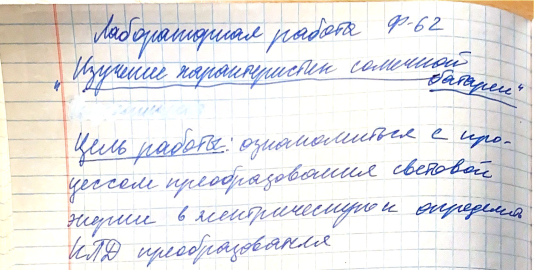 Лабораторная работа Ф-62
"Изучение характеристик солнечной
батареи"
Цель работы: ознакомиться с про-
цессом преобразования световой
энергии в электрическую и определи
КПД преобразования